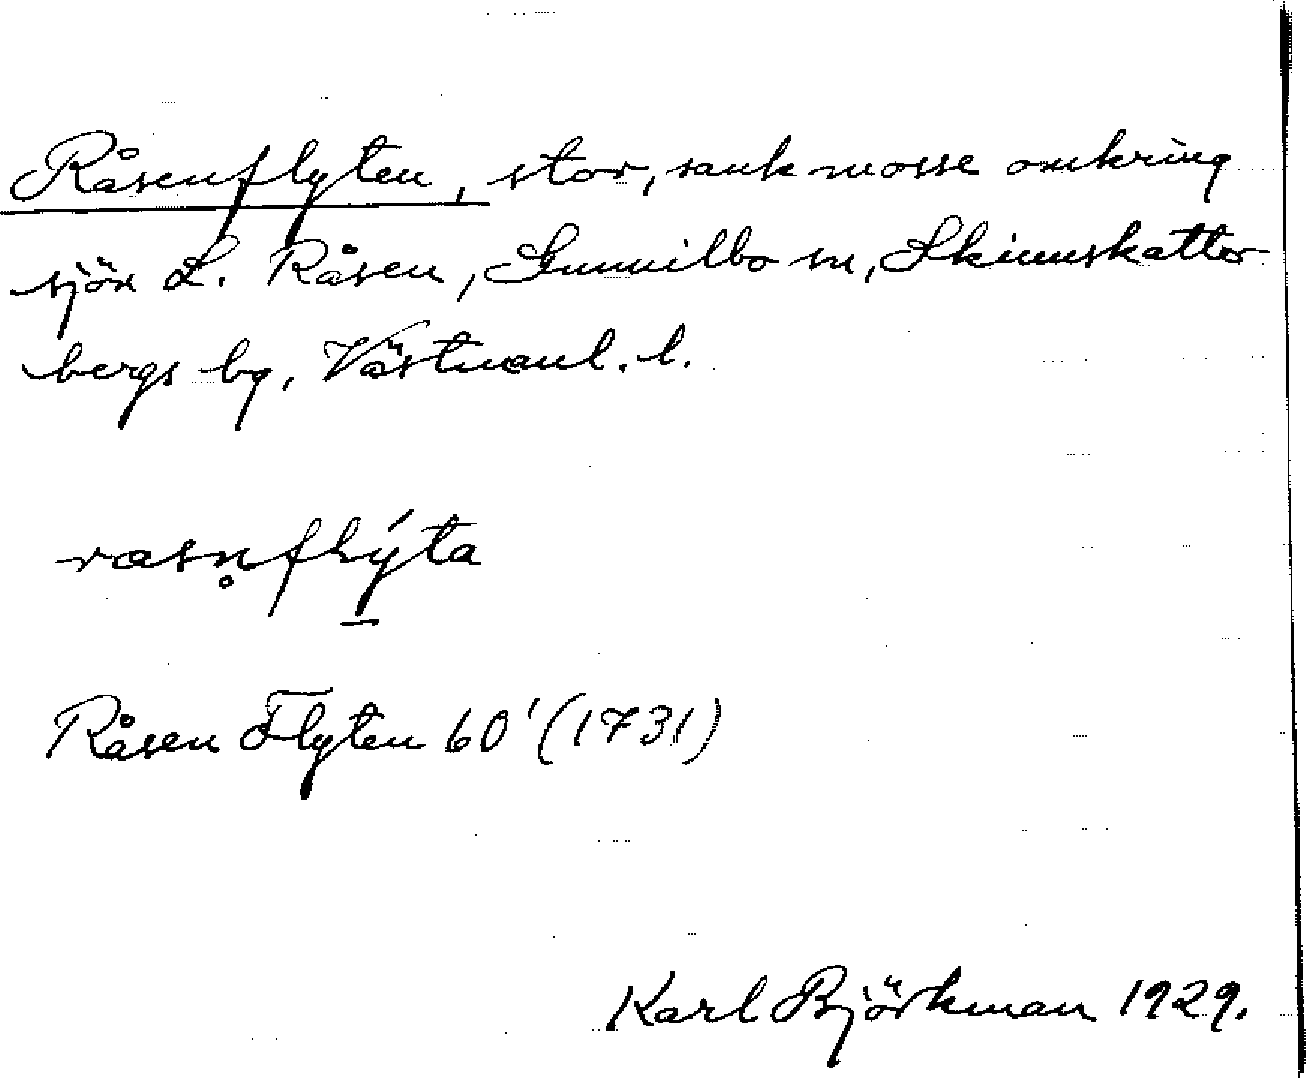 Råsenflyten, stor, sank mosse omkring
sjön L. Råsen, Gunnilbo sn, Skinnskatte-
bergs bg, Västmanl. l.
ræsn̥flýta
Råsen Flyten 60' (1731)
Karl Björkman 1929.